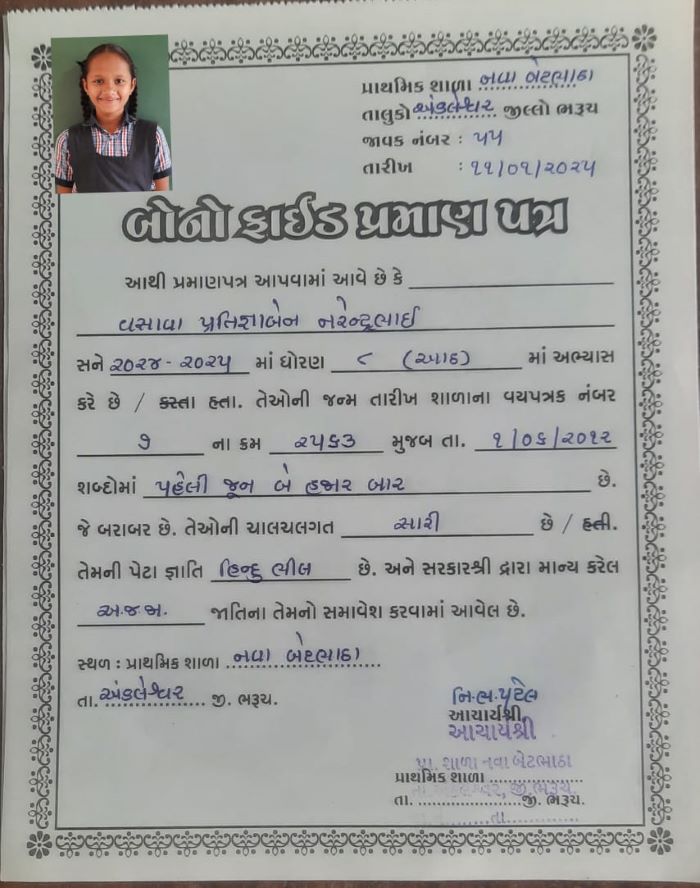 પ્રાથમિક શાળા નવા બેટભાઠા
તાલુકો અંકલેશ્વર જીલ્લો ભરૂચ
જાવક નંબર : ૫૫
તારીખ : ૧૧/૦૧/૨૦૨૫
બોનો ફાઈડ પ્રમાણ પત્ર
આથી પ્રમાણપત્ર આપવામાં આવે છે કે
વસાવા પ્રતિજ્ઞાબેન નરેન્દ્રભાઈ
સને ૨૦૨૪ - ૨૦૨૫ માં ધોરણ ૮ (આઠ) માં અભ્યાસ
કરે છે / કરતા હતા. તેઓની જન્મ તારીખ શાળાના વયપત્રક નંબર
૭ ના ક્રમ ૨૫૬૩ મુજબ તા. ૧/૦૬/૨૦૧૨
શબ્દોમાં પહેલી જૂન બે હજાર બાર છે.
જે બરાબર છે. તેઓની ચાલચલગત સારી છે / હતી.
તેમની પેટા જ્ઞાતિ હિન્દુ ભીલ છે. અને સરકારશ્રી દ્વારા માન્ય કરેલ
અ.જ.જા. જાતિના તેમનો સમાવેશ કરવામાં આવેલ છે.
સ્થળ : પ્રાથમિક શાળા નવા બેટભાઠા
તા. અંકલેશ્વર જી. ભરૂચ.
નિ.ભ.પટેલ
આચાર્યશ્રી
આચાર્યશ્રી
પ્રા. શાળા નવા બેટભાઠા
પ્રાથમિક શાળા
તા. અંકલેશ્વર, જી.ભરૂચ.
તા. જી. ભરૂચ.
તા.